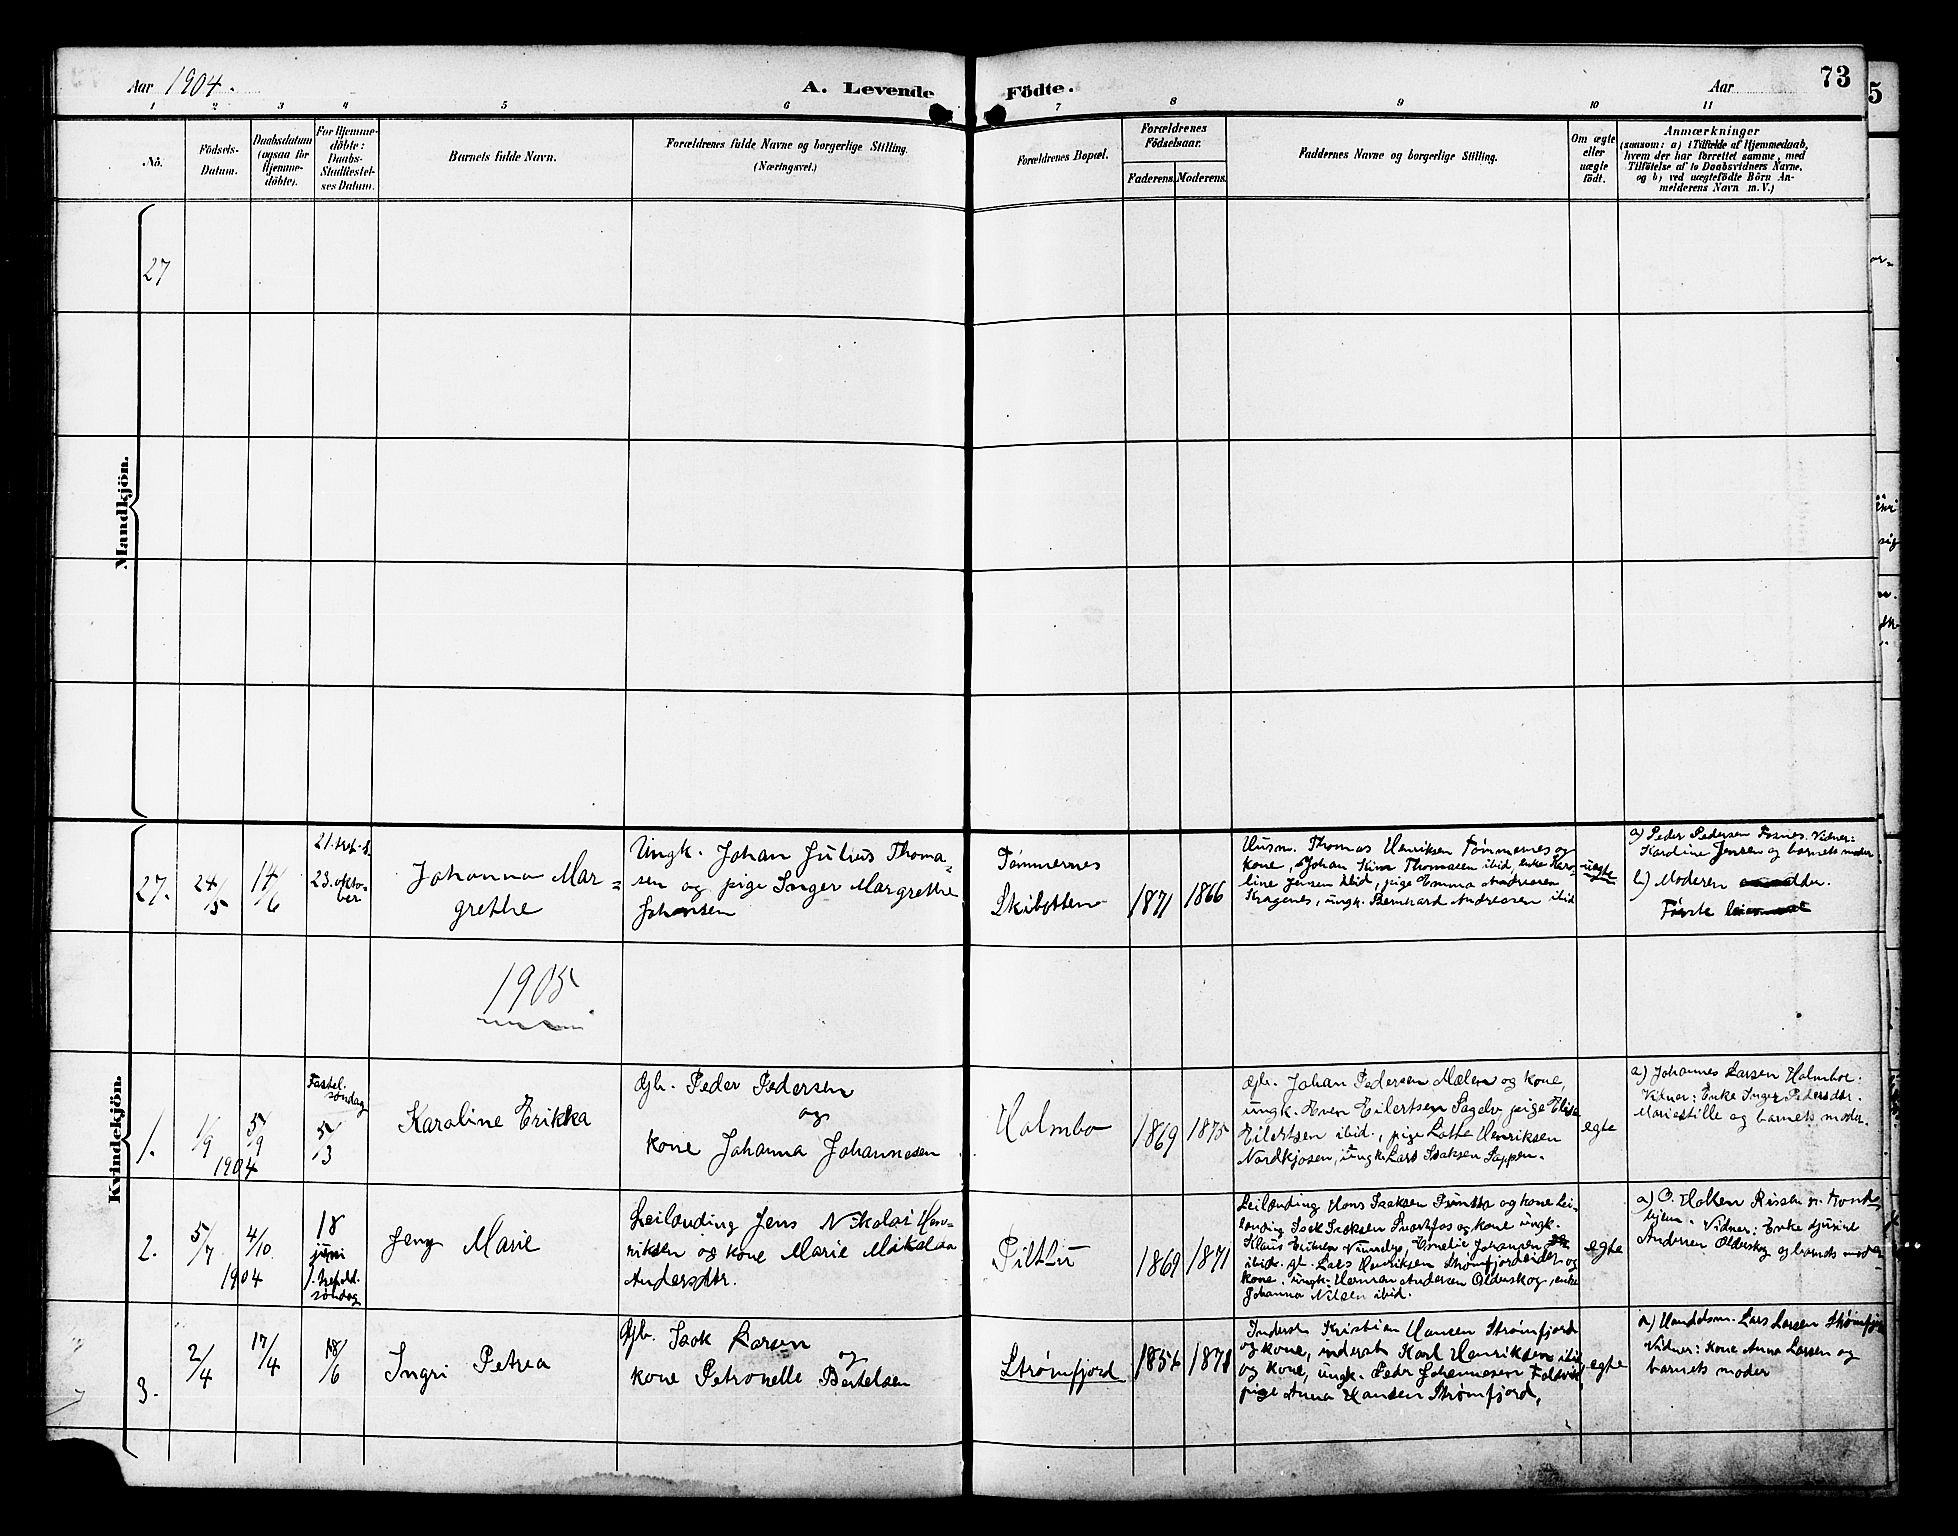 Aar 1904.
A. Levende Födte.
Aar
73
1 2 3 4 5 6 7 8 9 10 11
No.
Födsels-
Datum.
Daabsdatum
(ogsaa for
Hjemme-
döbte).
For Hjemme-
döbte:
Daabs-
Stadfæstel-
ses Datum.
Barnets fulde Navn.
Forældrenes fulde Navne og borgerlige Stilling.
(Næringsvei.)
Forældrenes Bopæl.
Forældrenes
Födselsaar.
Faderens.
Moderens.
Faddernes Navne og borgerlige Stilling.
Om ægte
eller
uægte
født.
Anmærkninger
(saasom: a) i Tilfælde af Hjemmedaab,
hvem der har forrettet samme, med
Tilföielse af to Daabsvidners Navne,
og b) ved uægtefödte Börn An-
melderens Navn m. V.)
Mandkjön.
27
Kvindekjön.
27.
24/5
17/6
23. okto-
ber
Johanna Mar=
grethe
Ungk. Johan Julius Thoma=
sen og pige Inger Margrethe
Johansen
Tømmernes
Skibotten
1871
1866
Husm. Thomas Henriksen Tømmernes og
kone, Johan Thomasen ibid, enke Karo-
line Jensen ibid, pige Emma Andreasen
ungk. Bernhard Andreasen ibid
uegte
a) Peder Pedersen Vidner:
Kardine Jensen og barnets moder
b) Moderen
Første
1905
1.
1/9
5/9
1904
Fastel.
søndag
5/3
Karoline Erikka
Gb. Peder Pedersen
og
kone Johanna Johannesen
Holmbo
1869
1875
Gb. Johan Pedersen Mælen og kone,
ungk. Even Eilertsen Sagelv pige
Eilertsen ibid., pige Lotte Henriksen
Nordkjosen, ungk. Lars Isaksen
egte
a) Johannes Larsen Holmboe:
Vidner: Enke Inger Pedersdtr.
og barnets moder.
2.
5/7
4/10.
1904
18
juni
søndag
Jeny Marie
Leilænding Jens Nikolai Hen-
riksen og kone Marie
Andersdtr.
1869
1871
Leilænding Hans Isaksen og kone lei-
lænding Isak Isaksen Svartfos og kone ungk.
Klaus Johansen
ibid. gb. Lars Henriksen Strømfjordeidet og
kone. ungk. Herman Andersen Olderskog, enke
Johanna Nilsen ibid.
egte
a) O. Holten
Vidner: Enke
Andersen Olderskog og barnets moder
3.
2/4
17/4
18/6
Ingri Petrea
Gb. Isak Larsen
og
kone Petronelle Bertelsen
Strømfjord
1878
Inderst Kristian Hansen Strømfjord
og kone, inderst Karl Henriksen ibid
og kone, ungk. Peder Johannesen
pige Anna Hansen Strømfjord,
egte
a) Handelsm. Lars Larsen
Vidner: Kone Anna Larsen og
barnets moder